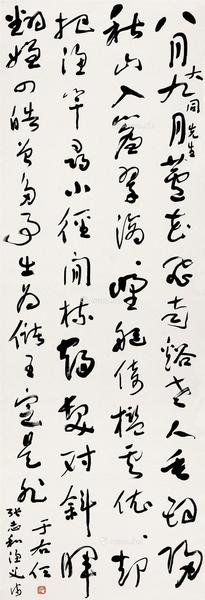 八月九月蘆花飛南谿老人垂釣歸
大同先生
秋山入簾翠滴滴野艇倚檻雲依依却
把漁竿尋小徑閒梳鶴髮對斜暉
翻嫌四皓曾多事出為儲王定是非
張志和漁父詩
于右任